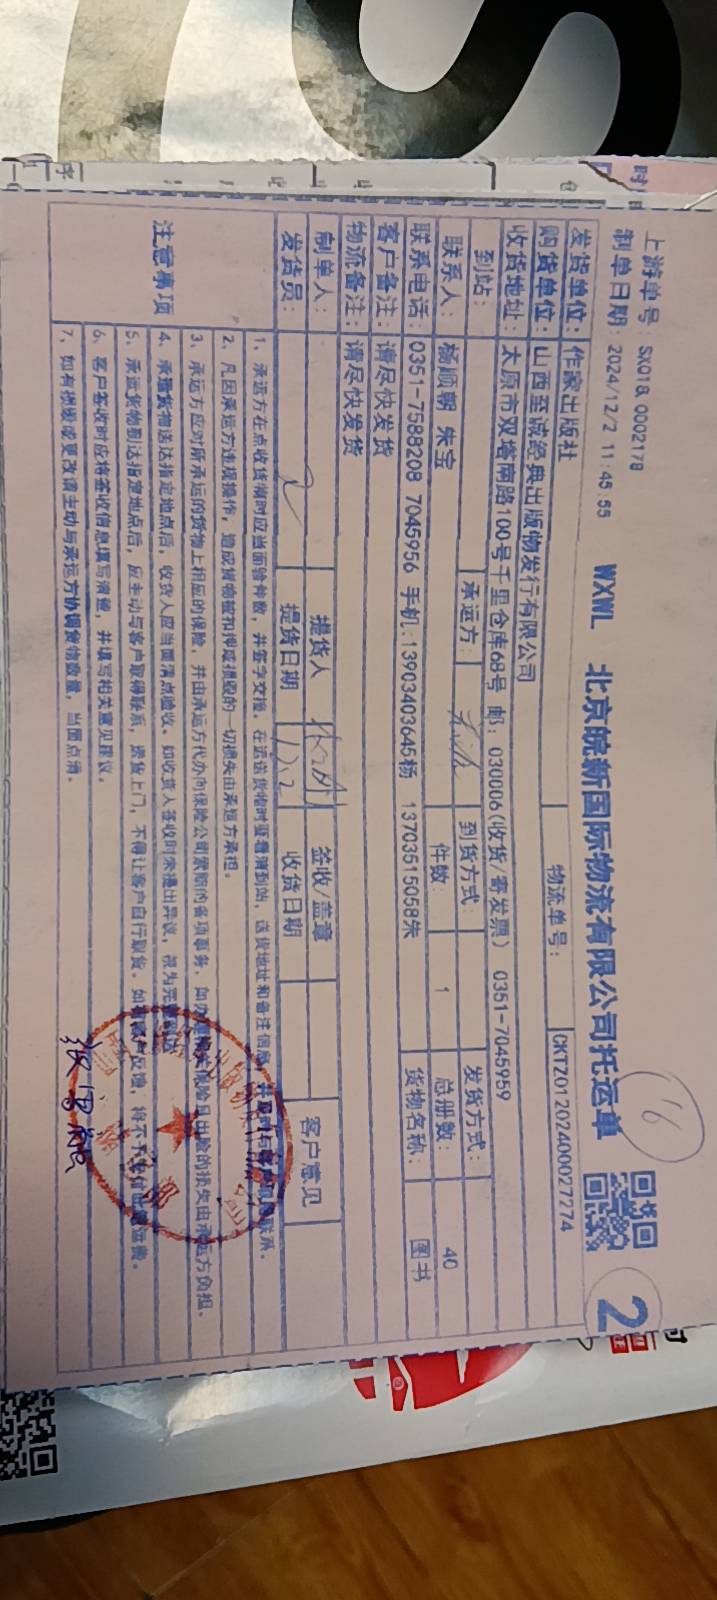 上游单号: SK018 0002178
制单日期: 2024/12/2 11:45:55
WXWL 北京皖新国际物流有限公司托运单
16
2
发货单位: 作家出版社
物流单号: CKTZ01202400027274
购货单位: 山西至诚经典出版物发行有限公司
收货地址: 太原市双塔南路100号千里仓库68号 邮: 030006(收货/寄发票) 0351-7045959
到站: 承运方: 到货方式: 发货方式:
联系人: 杨顺朝 朱宝 件数: 1 总册数: 40
联系电话: 0351-7588208 7045956 手机:13903403645杨 13703515058朱 货物名称: 图书
客户备注: 请尽快发货
物流备注: 请尽快发货
制单人: 提货人 签收/盖章 客户意见
发货员: 提货日期 12.2 收货日期
注意事项
1、承运方在点收货物时应当面验件数，并签字交接。在运送货物时要看清到站，送货地址和备注信息，并及时与客户取得联系。
2、凡因承运方违规操作，造成货物被扣押或损毁的一切损失由承运方承担。
3、承运方应对所承运的货物上相应的保险，并由承运方代办向保险公司索赔的各项事务，如办理相关保险且出险的损失由承运方负担。
4、承运货物送达指定地点后，收货人应当面清点验收。如收货人签收时未提出异议，视为完
5、承运货物到达指定地点后，应主动与客户取得联系，送货上门，不得让客户自行取货。如
6、客户签收时应将签收信息填写清楚，并填写相关意见建议。
7、如有损毁或更改请主动与承运方协调货物数量，当面点清。